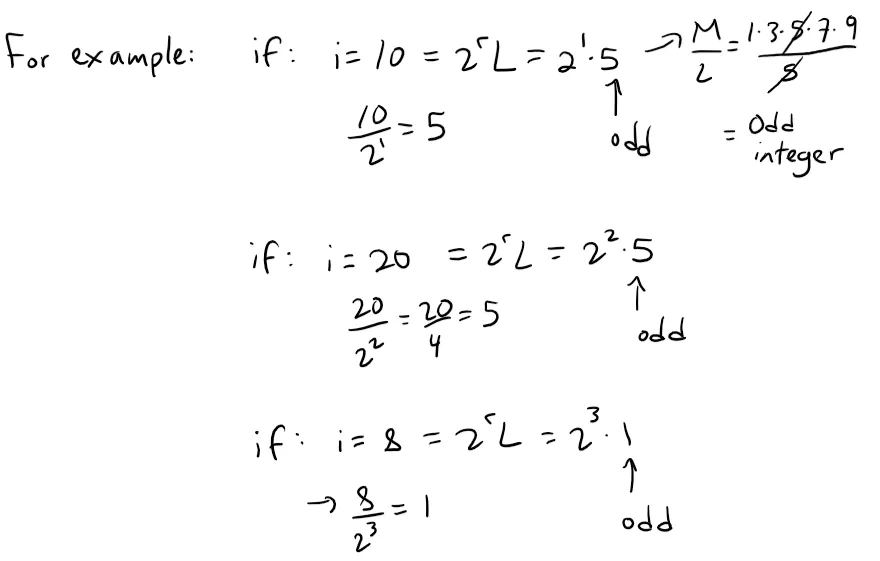 For example: if: i = 10 = 2^r L = 2^1 · 5 → M/L = 1·3·5·7·9 / 5
10/2^1 = 5 ↑ odd = Odd integer
if: i = 20 = 2^r L = 2^2 · 5
20/2^2 = 20/4 = 5 ↑ odd
if: i = 8 = 2^r L = 2^3 · 1
→ 8/2^3 = 1 ↑ odd